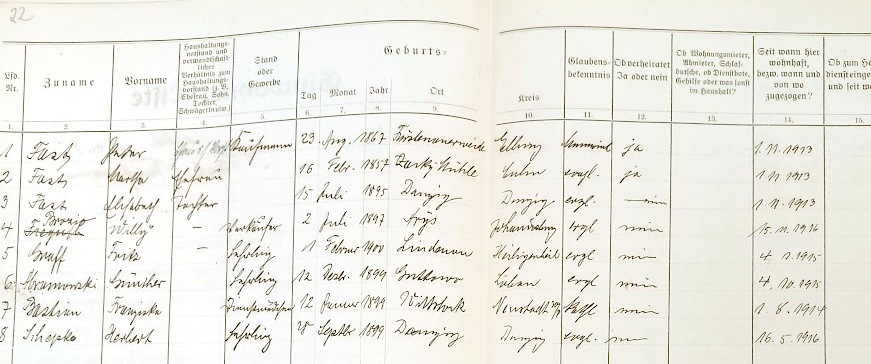 22
Lfd. Nr. Zuname Vorname Haushaltungsvorstand und verwandschaftliches Verhältnis zum Haushaltungsvorstand (z. B. Ehefrau, Sohn, Tochter, Schwägerin usw.) Stand oder Gewerbe Geburts- Tag Monat Jahr Ort Kreis Glaubensbekenntnis Ob verheiratet Ja oder nein Ob Wohnungsmieter, Abmieter, Schlafbursche, ob Dienstbote, Gehilfe oder was sonst im Haushalt? Seit wann hier wohnhaft, bezw. wann und von wo zugezogen? Ob zum He diensteingez und seit we
1. 2. 3. 4. 5. 6. 7. 8. 9. 10. 11. 12. 13. 14. 15.
1 Fast Peter Kaufmann 23. Aug. 1867 Fürstenauerweide Elbing ja 1. 11. 1913
2 Fast Martha Ehefrau 16 Febr. 1857 Mühle Culm evgl. ja 1. 11. 1913
3 Fast Elisabeth Tochter 15 Juli 1895 Danzig Danzig evgl. nein 1. 11. 1913
4 Willy – Verkäufer 2 Juli 1897 Arys Johannisburg evgl nein 15. 11. 1916
5 Graff Fritz – Lehrling 1 Februar 1900 Lindenau Heiligenbeil evgl nein 4. 1. 1915
6 Abramowski Günther Lehrling 12 Dezbr. 1899 Guttowo Löbau evgl nein 4. 10. 1915
7 Bastian Franziska Dienstmädchen 12 Januar 1899 Neustadt kath nein 1. 8. 1914
8 Schepke Herbert Lehrling 28 Septbr 1899 Danzig Danzig evgl. nein 16. 5. 1916